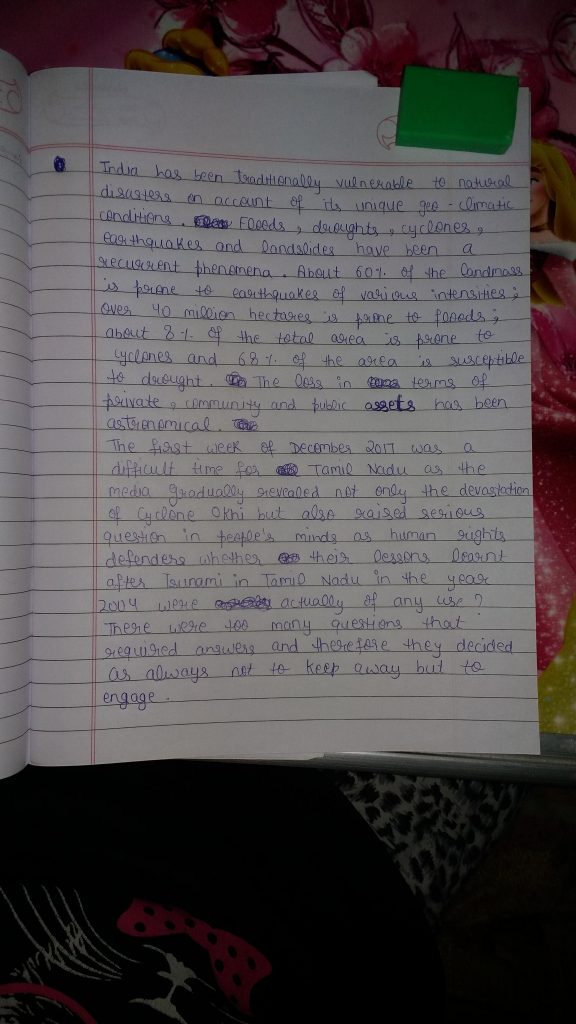 India has been traditionally vulnerable to natural
disasters on account of its unique geo-climatic
conditions. Floods, droughts, cyclones,
earthquakes and landslides have been a
recurrent phenomena. About 60% of the landmass
is prone to earthquakes of various intensities;
over 40 million hectares is prone to floods;
about 8% of the total area is prone to
cyclones and 68% of the area is susceptible
to drought. The loss in terms of
private, community and public assets has been
astronomical.
The first week of December 2017 was a
difficult time for Tamil Nadu as the
media gradually revealed not only the devastation
of Cyclone Okhi but also raised serious
question in people's minds as human rights
defenders whether their lessons learnt
after Tsunami in Tamil Nadu in the year
2004 were actually of any use?
There were too many questions that
required answers and therefore they decided
as always not to keep away but to
engage.